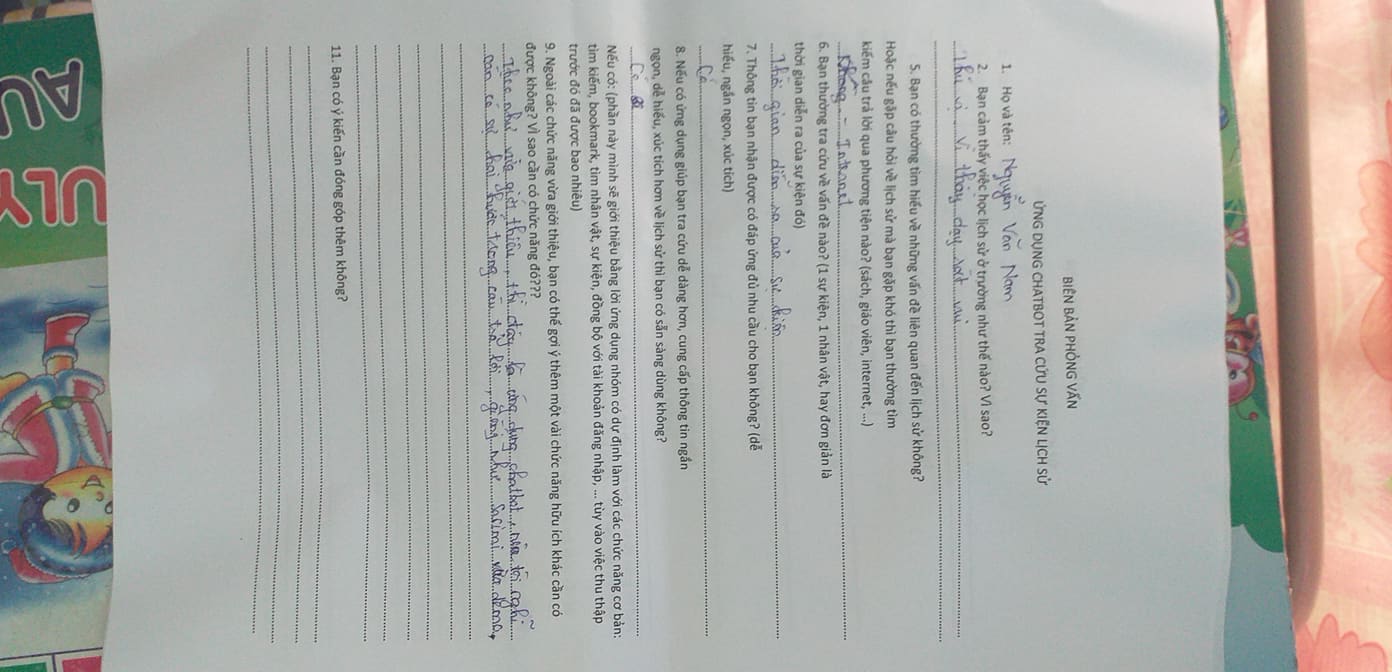 BIÊN BẢN PHỎNG VẤN
ỨNG DỤNG CHATBOT TRA CỨU SỰ KIỆN LỊCH SỬ
1. Họ và tên: Nguyễn Văn Nam
2. Bạn cảm thấy việc học lịch sử ở trường như thế nào? Vì sao?
Thú vị. Vì thầy dạy rất vui
5. Bạn có thường tìm hiểu về những vấn đề liên quan đến lịch sử không?
Hoặc nếu gặp câu hỏi về lịch sử mà bạn gặp khó thì bạn thường tìm
kiếm câu trả lời qua phương tiện nào? (sách, giáo viên, internet, ...)
Không - Internet
6. Bạn thường tra cứu về vấn đề nào? (1 sự kiện, 1 nhân vật, hay đơn giản là
thời gian diễn ra của sự kiện đó)
Thời gian diễn ra của sự kiện
7. Thông tin bạn nhận được có đáp ứng đủ nhu cầu cho bạn không? (dễ
hiểu, ngắn ngọn, xúc tích)
Có
8. Nếu có ứng dụng giúp bạn tra cứu dễ dàng hơn, cung cấp thông tin ngắn
ngọn, dễ hiểu, xúc tích hơn về lịch sử thì bạn có sẵn sàng dùng không?
Có
Nếu có: (phần này mình sẽ giới thiệu bằng lời ứng dụng nhóm có dự định làm với các chức năng cơ bản:
tìm kiếm, bookmark, tìm nhân vật, sự kiện, đồng bộ với tài khoản đăng nhập, ... tùy vào việc thu thập
trước đó đã được bao nhiêu)
9. Ngoài các chức năng vừa giới thiệu, bạn có thể gợi ý thêm một vài chức năng hữu ích khác cần có
được không? Vì sao cần có chức năng đó???
Theo như vừa giới thiệu, thì đây là ứng dụng chatbot, nên tôi nghĩ
cần có sự hài hước trong câu trả lời, giống như Sarimi vừa demo,
11. Bạn có ý kiến cần đóng góp thêm không?
ULY
AU